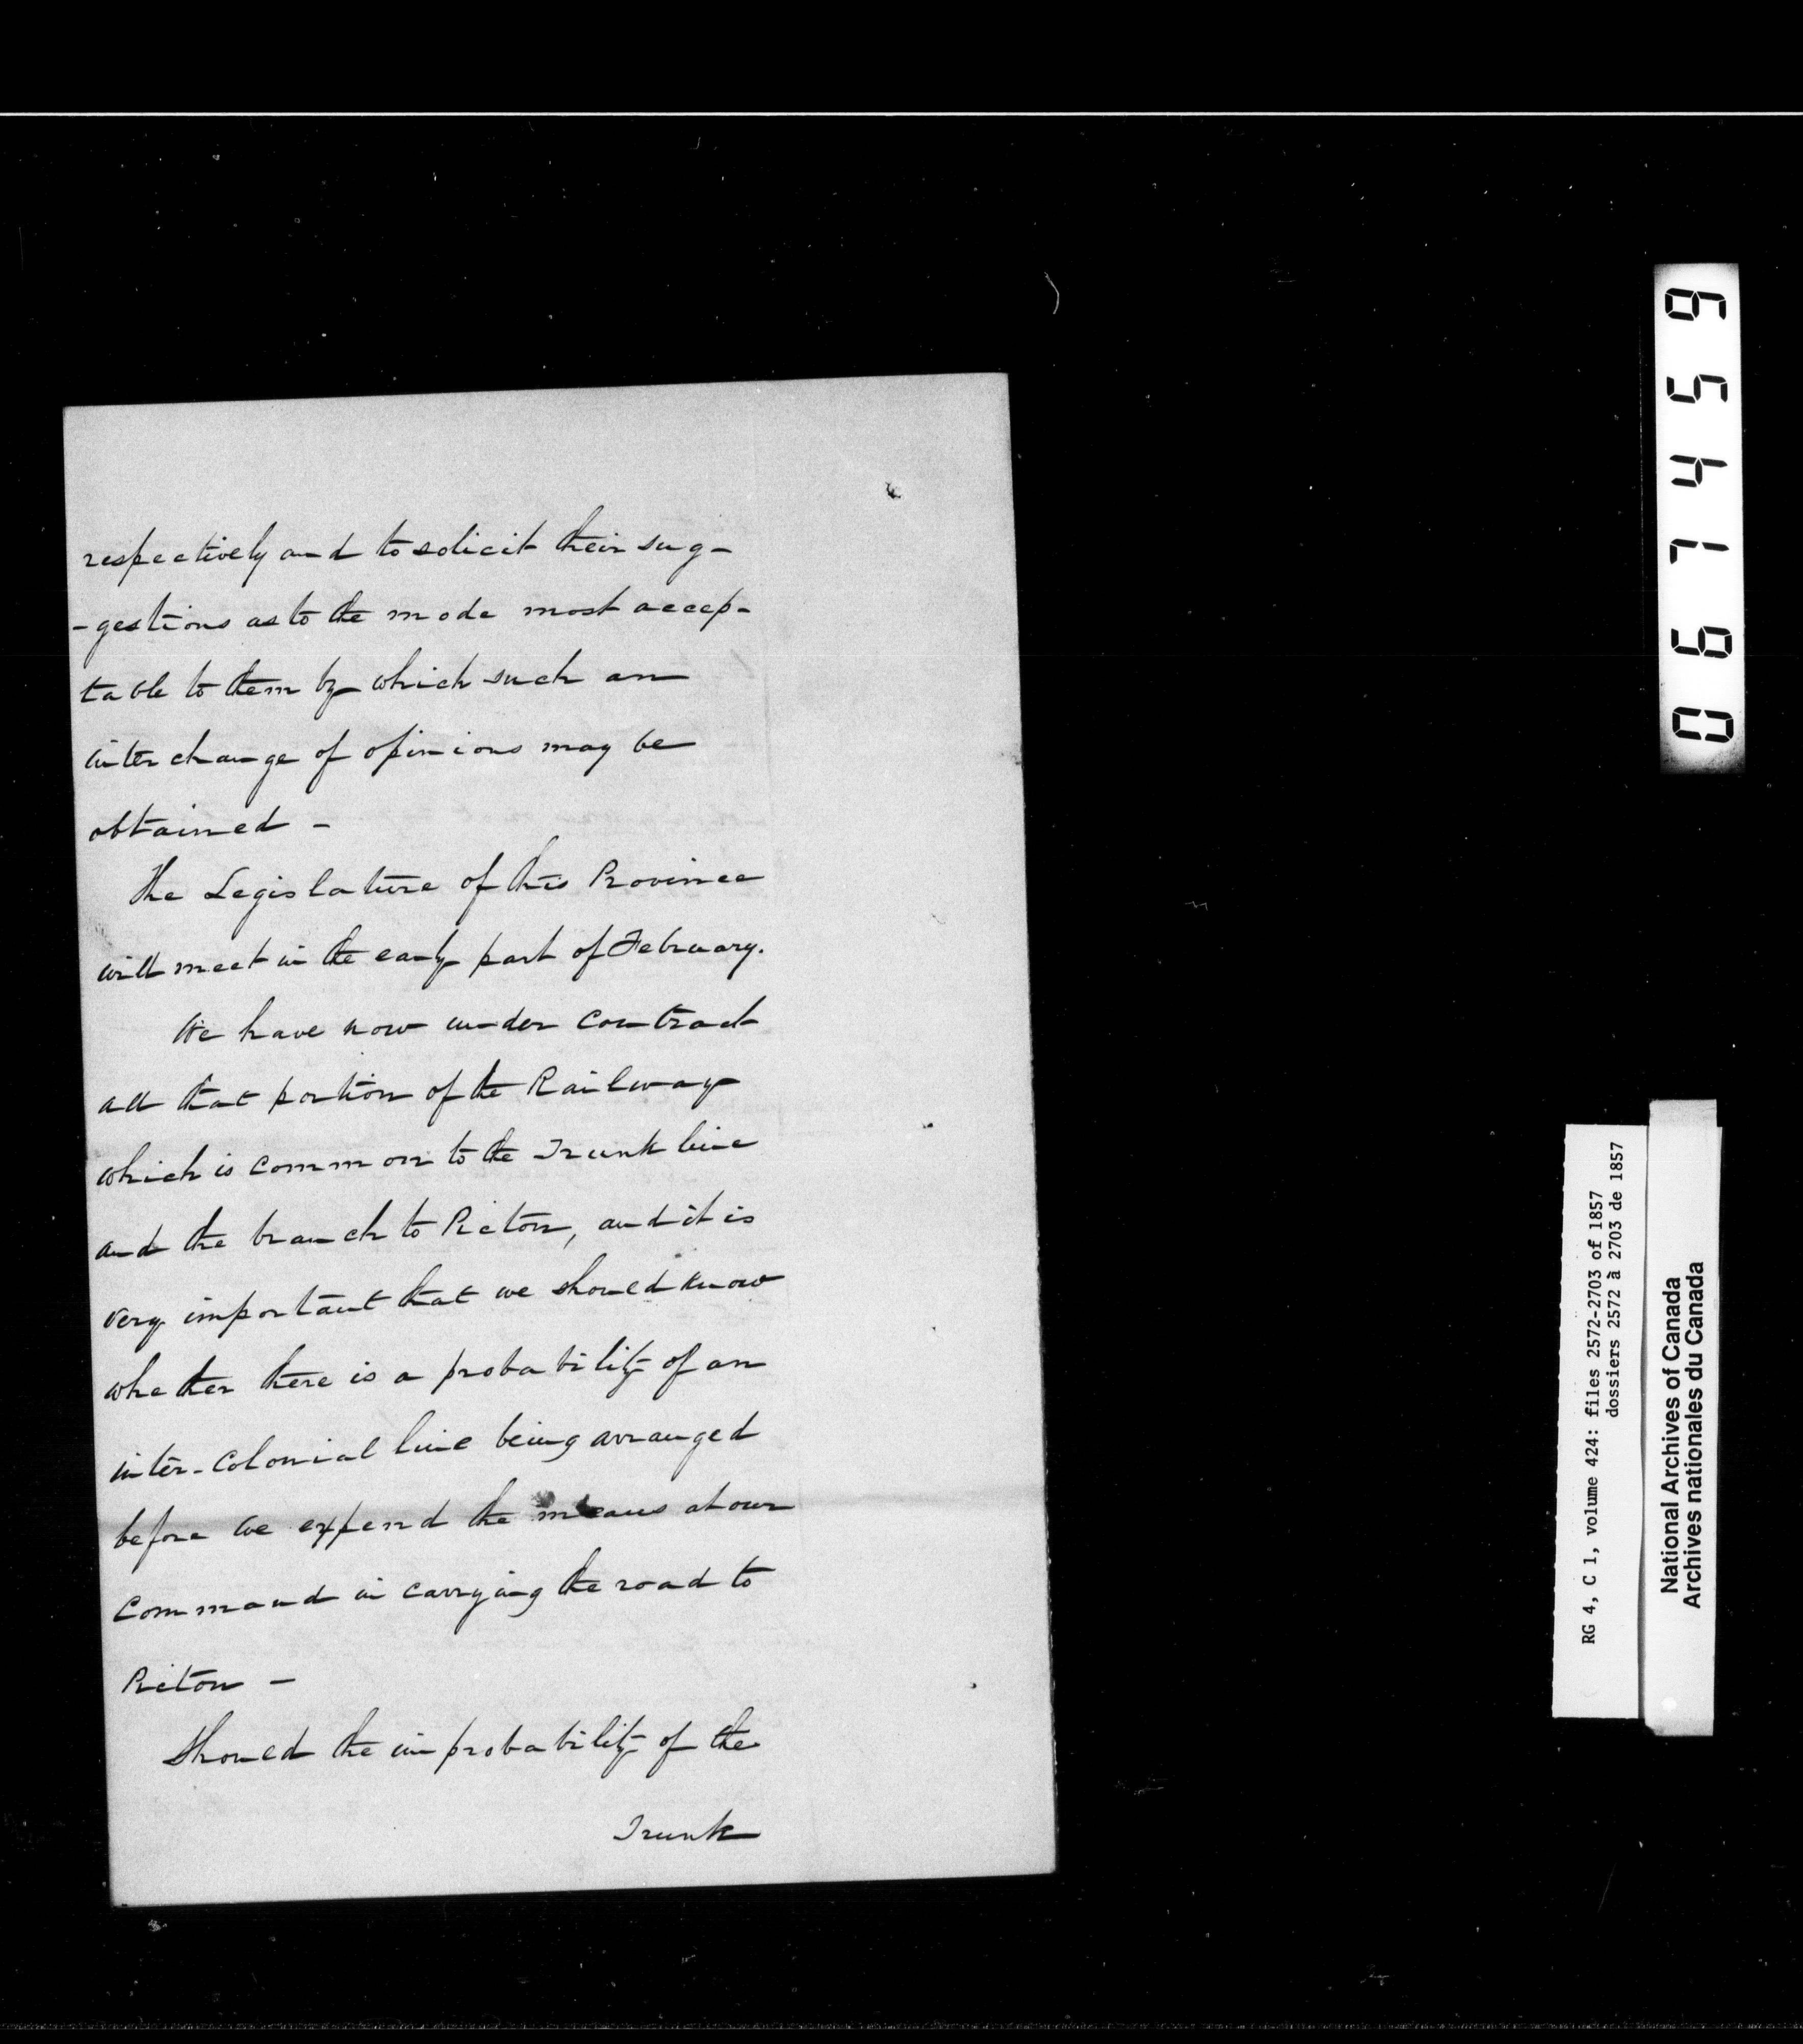 respectively and to solicit their sug-
-gestions as to the mode most accep-
table to them by which such an
interchange of opinions may be
obtained -
The Legislature of this Province
will meet in the early part of February.
We have now under contract
all that portion of the Railway
which is common to the Trunk line
and the branch to Pictou, and it is
very important that we should know
whether there is a probability of an
inter-colonial line being arranged
before we expend the means at our
command in carrying the road to
Pictou -
Should the improbability of the
Trunk
067459
RG 4, C 1, volume 424: files 2572-2703 of 1857
dossiers 2572 à 2703 de 1857
National Archives of Canada
Archives nationales du Canada